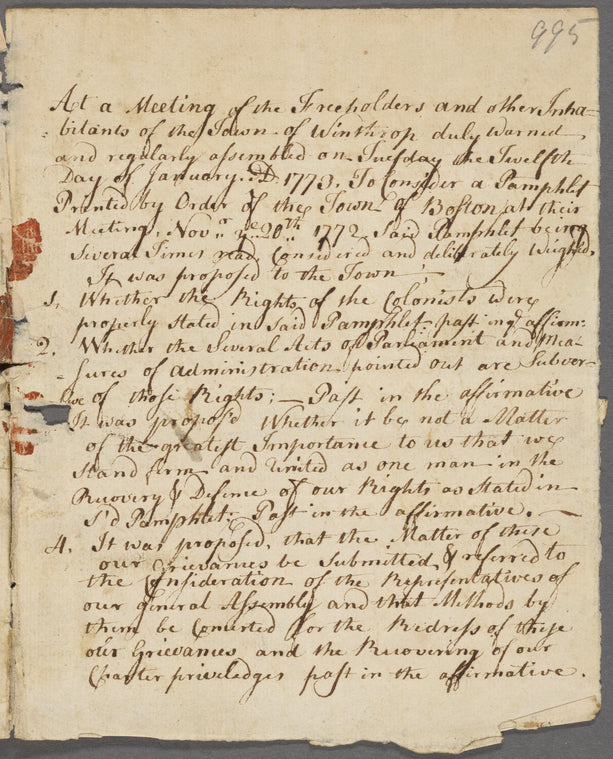 995
At a Meeting of the Freeholders and other Inha-
bitants of the Town of Winthrop duly warned,
and regularly assembled on Tuesday the Twelfth
Day of January A:D. 1773. To Consider a Pamphlet
Printed by Order of the Town of Boston at their
Meeting, Novr. ye 20th 1772. Said Pamphlet being
Several Times read, Considered and deliberately Weighed,
It was proposed to the Town,
1. Whether the Rights of the Colonists were
properly stated in said Pamphlet - past in ye affirm:
2. Whether the Several Acts of Parliament and Mea-
sures of administration pointed out are Subver-
sive of those Rights; — Past in the affirmative
It was propos'd Whether it be not a Matter
of the greatest Importance to us that we
stand firm and United as one man in the
Recovery & Defence of our Rights as Stated in
S'd Pamphlet; Past in the affirmative. —
4. It was proposed, that the Matter of these
our Grievances be Submitted, & referred to
the Consideration of the Representatives of
our General Assembly and that Methods by
them be Concerted for the Redress of these
our Grievances and the Recovering of our
Charter priviledges past in the affirmative.